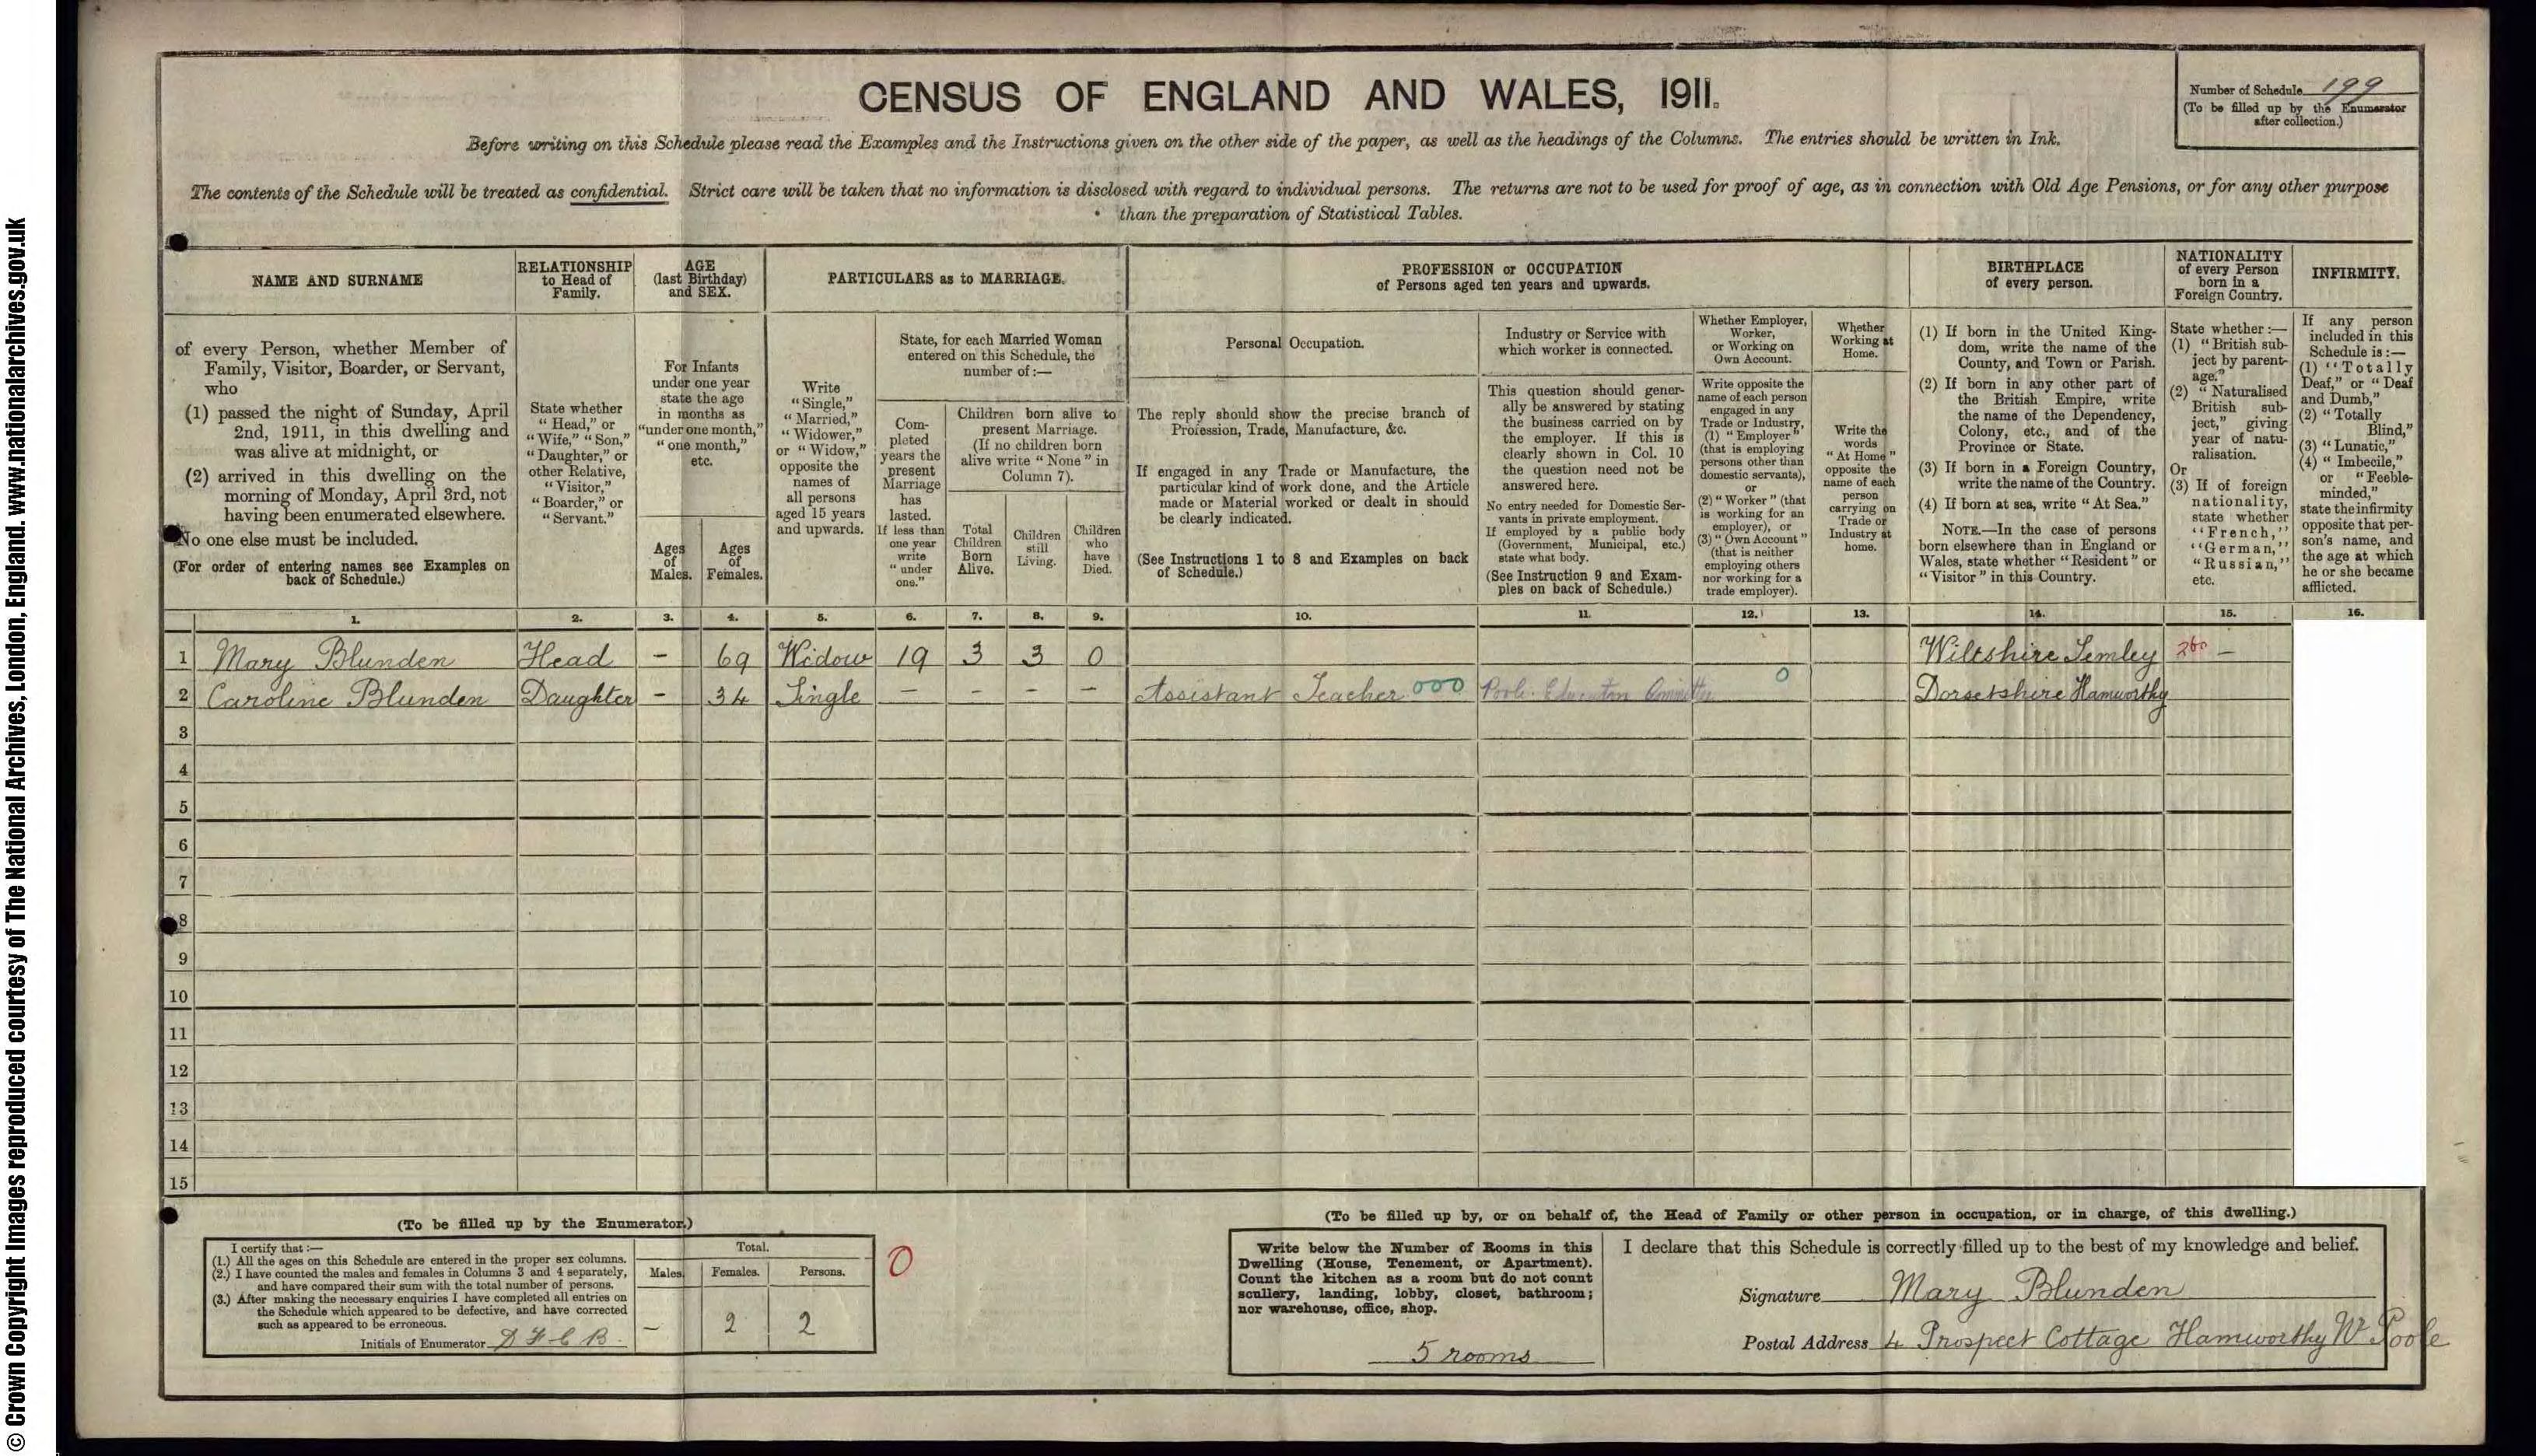 © Crown Copyright Images reproduced courtesy of The National Archives, London, England. www.nationalarchives.gov.uk
CENSUS OF ENGLAND AND WALES, 1911.
Number of Schedule 199
(To be filled up by the Enumerator
after collection.)
Before writing on this Schedule please read the Examples and the Instructions given on the other side of the paper, as well as the headings of the Columns. The entries should be written in Ink.
The contents of the Schedule will be treated as confidential. Strict care will be taken that no information is disclosed with regard to individual persons. The returns are not to be used for proof of age, as in connection with Old Age Pensions, or for any other purpose
than the preparation of Statistical Tables.
NAME AND SURNAME
of every Person, whether Member of
Family, Visitor, Boarder, or Servant,
who
(1) passed the night of Sunday, April
2nd, 1911, in this dwelling and
was alive at midnight, or
(2) arrived in this dwelling on the
morning of Monday, April 3rd, not
having been enumerated elsewhere.
No one else must be included.
(For order of entering names see Examples on
back of Schedule.)
RELATIONSHIP
to Head of
Family.
State whether
"Head," or
"Wife," "Son,"
"Daughter," or
other Relative,
"Visitor,"
"Boarder," or
"Servant."
AGE
(last Birthday)
and SEX.
For Infants
under one year
state the age
in months as
"under one month,"
"one month,"
etc.
Ages
of
Males.
Ages
of
Females.
PARTICULARS as to MARRIAGE.
Write
"Single,"
"Married,"
"Widower,"
or "Widow,"
opposite the
names of
all persons
aged 15 years
and upwards.
State, for each Married Woman
entered on this Schedule, the
number of:—
Com-
pleted
years the
present
Marriage
has
lasted.
If less than
one year
write
"under
one."
Children born alive to
present Marriage.
(If no children born
alive write "None" in
Column 7).
Total
Children
Born
Alive.
Children
still
Living.
Children
who
have
Died.
PROFESSION or OCCUPATION
of Persons aged ten years and upwards.
Personal Occupation.
The reply should show the precise branch of
Profession, Trade, Manufacture, &c.
If engaged in any Trade or Manufacture, the
particular kind of work done, and the Article
made or Material worked or dealt in should
be clearly indicated.
(See Instructions 1 to 8 and Examples on back
of Schedule.)
Industry or Service with
which worker is connected.
This question should gener-
ally be answered by stating
the business carried on by
the employer. If this is
clearly shown in Col. 10
the question need not be
answered here.
No entry needed for Domestic Ser-
vants in private employment.
If employed by a public body
(Government, Municipal, etc.)
state what body.
(See Instruction 9 and Exam-
ples on back of Schedule.)
Whether Employer,
Worker,
or Working on
Own Account.
Write opposite the
name of each person
engaged in any
Trade or Industry,
(1) "Employer"
(that is employing
persons other than
domestic servants),
or
(2) "Worker" (that
is working for an
employer), or
(3) "Own Account"
(that is neither
employing others
nor working for a
trade employer).
Whether
Working at
Home.
Write the
words
"At Home"
opposite the
name of each
person
carrying on
Trade or
Industry at
home.
BIRTHPLACE
of every person.
(1) If born in the United King-
dom, write the name of the
County, and Town or Parish.
(2) If born in any other part of
the British Empire, write
the name of the Dependency,
Colony, etc., and of the
Province or State.
(3) If born in a Foreign Country,
write the name of the Country.
(4) If born at sea, write "At Sea."
NOTE.—In the case of persons
born elsewhere than in England or
Wales, state whether "Resident" or
"Visitor" in this Country.
NATIONALITY
of every Person
born in a
Foreign Country.
State whether:—
(1) "British sub-
ject by parent-
age."
(2) "Naturalised
British sub-
ject," giving
year of natu-
ralisation.
Or
(3) If of foreign
nationality,
state whether
"French,"
"German,"
"Russian,"
etc.
INFIRMITY.
If any person
included in this
Schedule is:—
(1) "Totally
Deaf," or "Deaf
and Dumb,"
(2) "Totally
Blind,"
(3) "Lunatic,"
(4) "Imbecile,"
or "Feeble-
minded,"
state the infirmity
opposite that per-
son's name, and
the age at which
he or she became
afflicted.
1. 2. 3. 4. 5. 6. 7. 8. 9. 10. 11. 12. 13. 14. 15. 16.
1 Mary Blunden Head – 69 Widow 19 3 3 0 Wiltshire Semley 260 –
2 Caroline Blunden Daughter – 34 Single – – – – Assistant Teacher 000 Poole Education Committee 0 Dorsetshire Hamworthy
3
4
5
6
7
8
9
10
11
12
13
14
15
(To be filled up by the Enumerator.)
I certify that:—
(1.) All the ages on this Schedule are entered in the proper sex columns.
(2.) I have counted the males and females in Columns 3 and 4 separately,
and have compared their sum with the total number of persons.
(3.) After making the necessary enquiries I have completed all entries on
the Schedule which appeared to be defective, and have corrected
such as appeared to be erroneous.
Initials of Enumerator
Total.
Males. Females. Persons.
– 2 2
0
(To be filled up by, or on behalf of, the Head of Family or other person in occupation, or in charge, of this dwelling.)
Write below the Number of Rooms in this
Dwelling (House, Tenement, or Apartment).
Count the kitchen as a room but do not count
scullery, landing, lobby, closet, bathroom;
nor warehouse, office, shop.
5 rooms
I declare that this Schedule is correctly filled up to the best of my knowledge and belief.
Signature Mary Blunden
Postal Address 4 Prospect Cottage Hamworthy Nr Poole